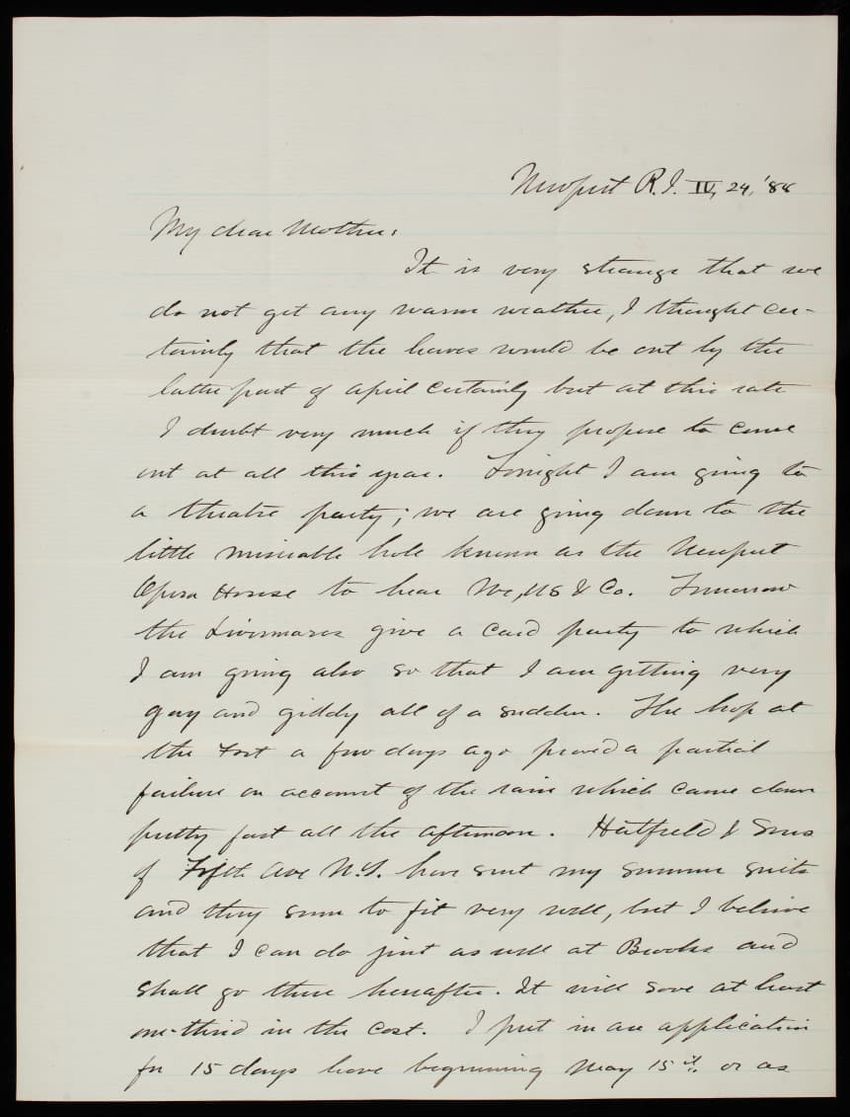 Newport R.I. IV, 24, '88
My dear Mother:
It is very strange that we
do not get any warm weather, I thought cer-
tainly that the leaves would be out by the
latter part of April certainly but at this rate
I doubt very much if they propose to come
out at all this year. Tonight I am going to
a theatre party; we are going down to the
little miserable hole known as the Newport
Opera House to hear We, US & Co. Tomorrow
the Livermores give a card party to which
I am going also so that I am getting very
gay and giddy all of a sudden. The hop at
the Fort a few days ago proved a partial
failure on account of the rain which came down
pretty fast all the afternoon. Hatfield & Sons
of Fifth Ave N.Y. have sent my summer suits
and they seem to fit very well, but I believe
that I can do just as well at Brooks and
shall go there hereafter. It will save at least
one-third in the cost. I put in an application
for 15 days leave beginning May 15th, or as